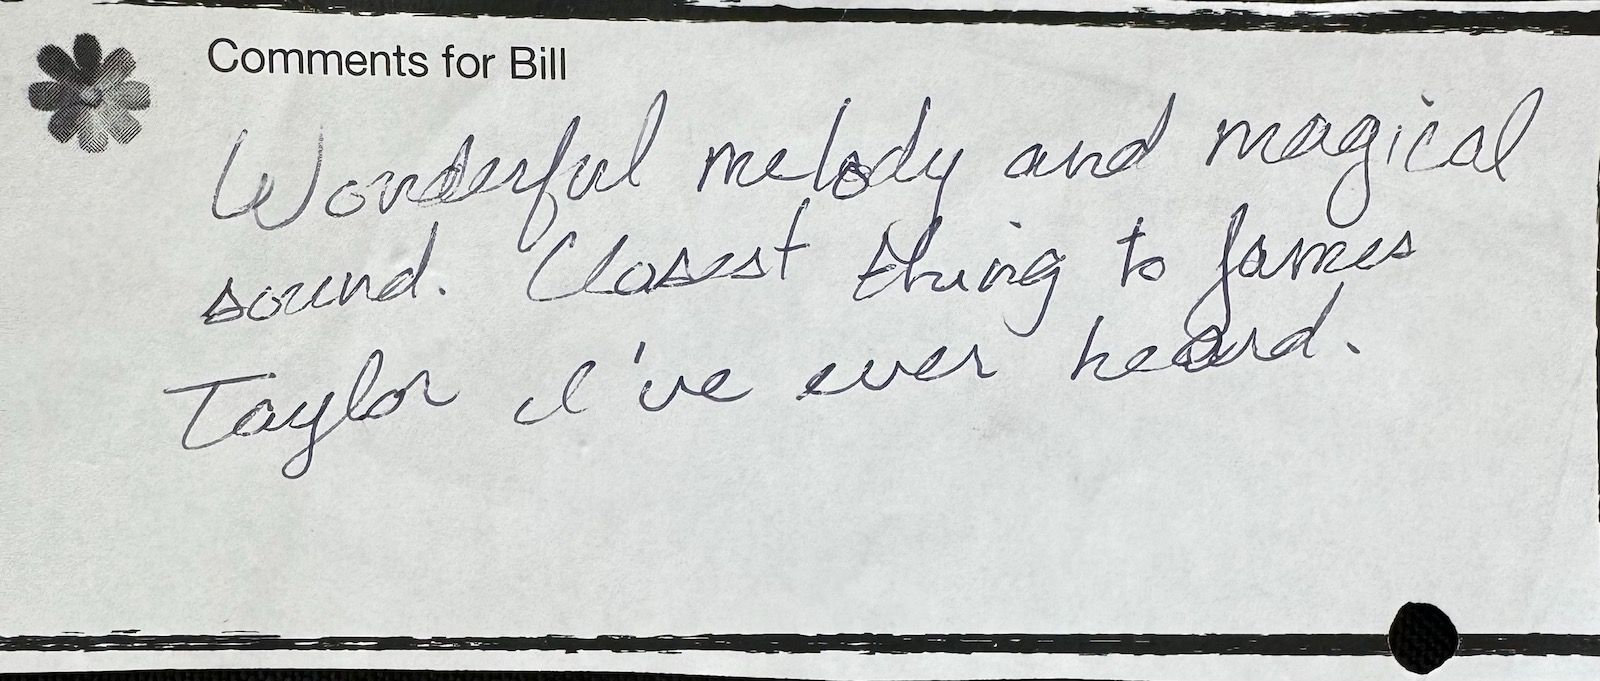 Comments for Bill
Wonderful melody and magical
sound. Closest thing to James
Taylor I've ever heard.